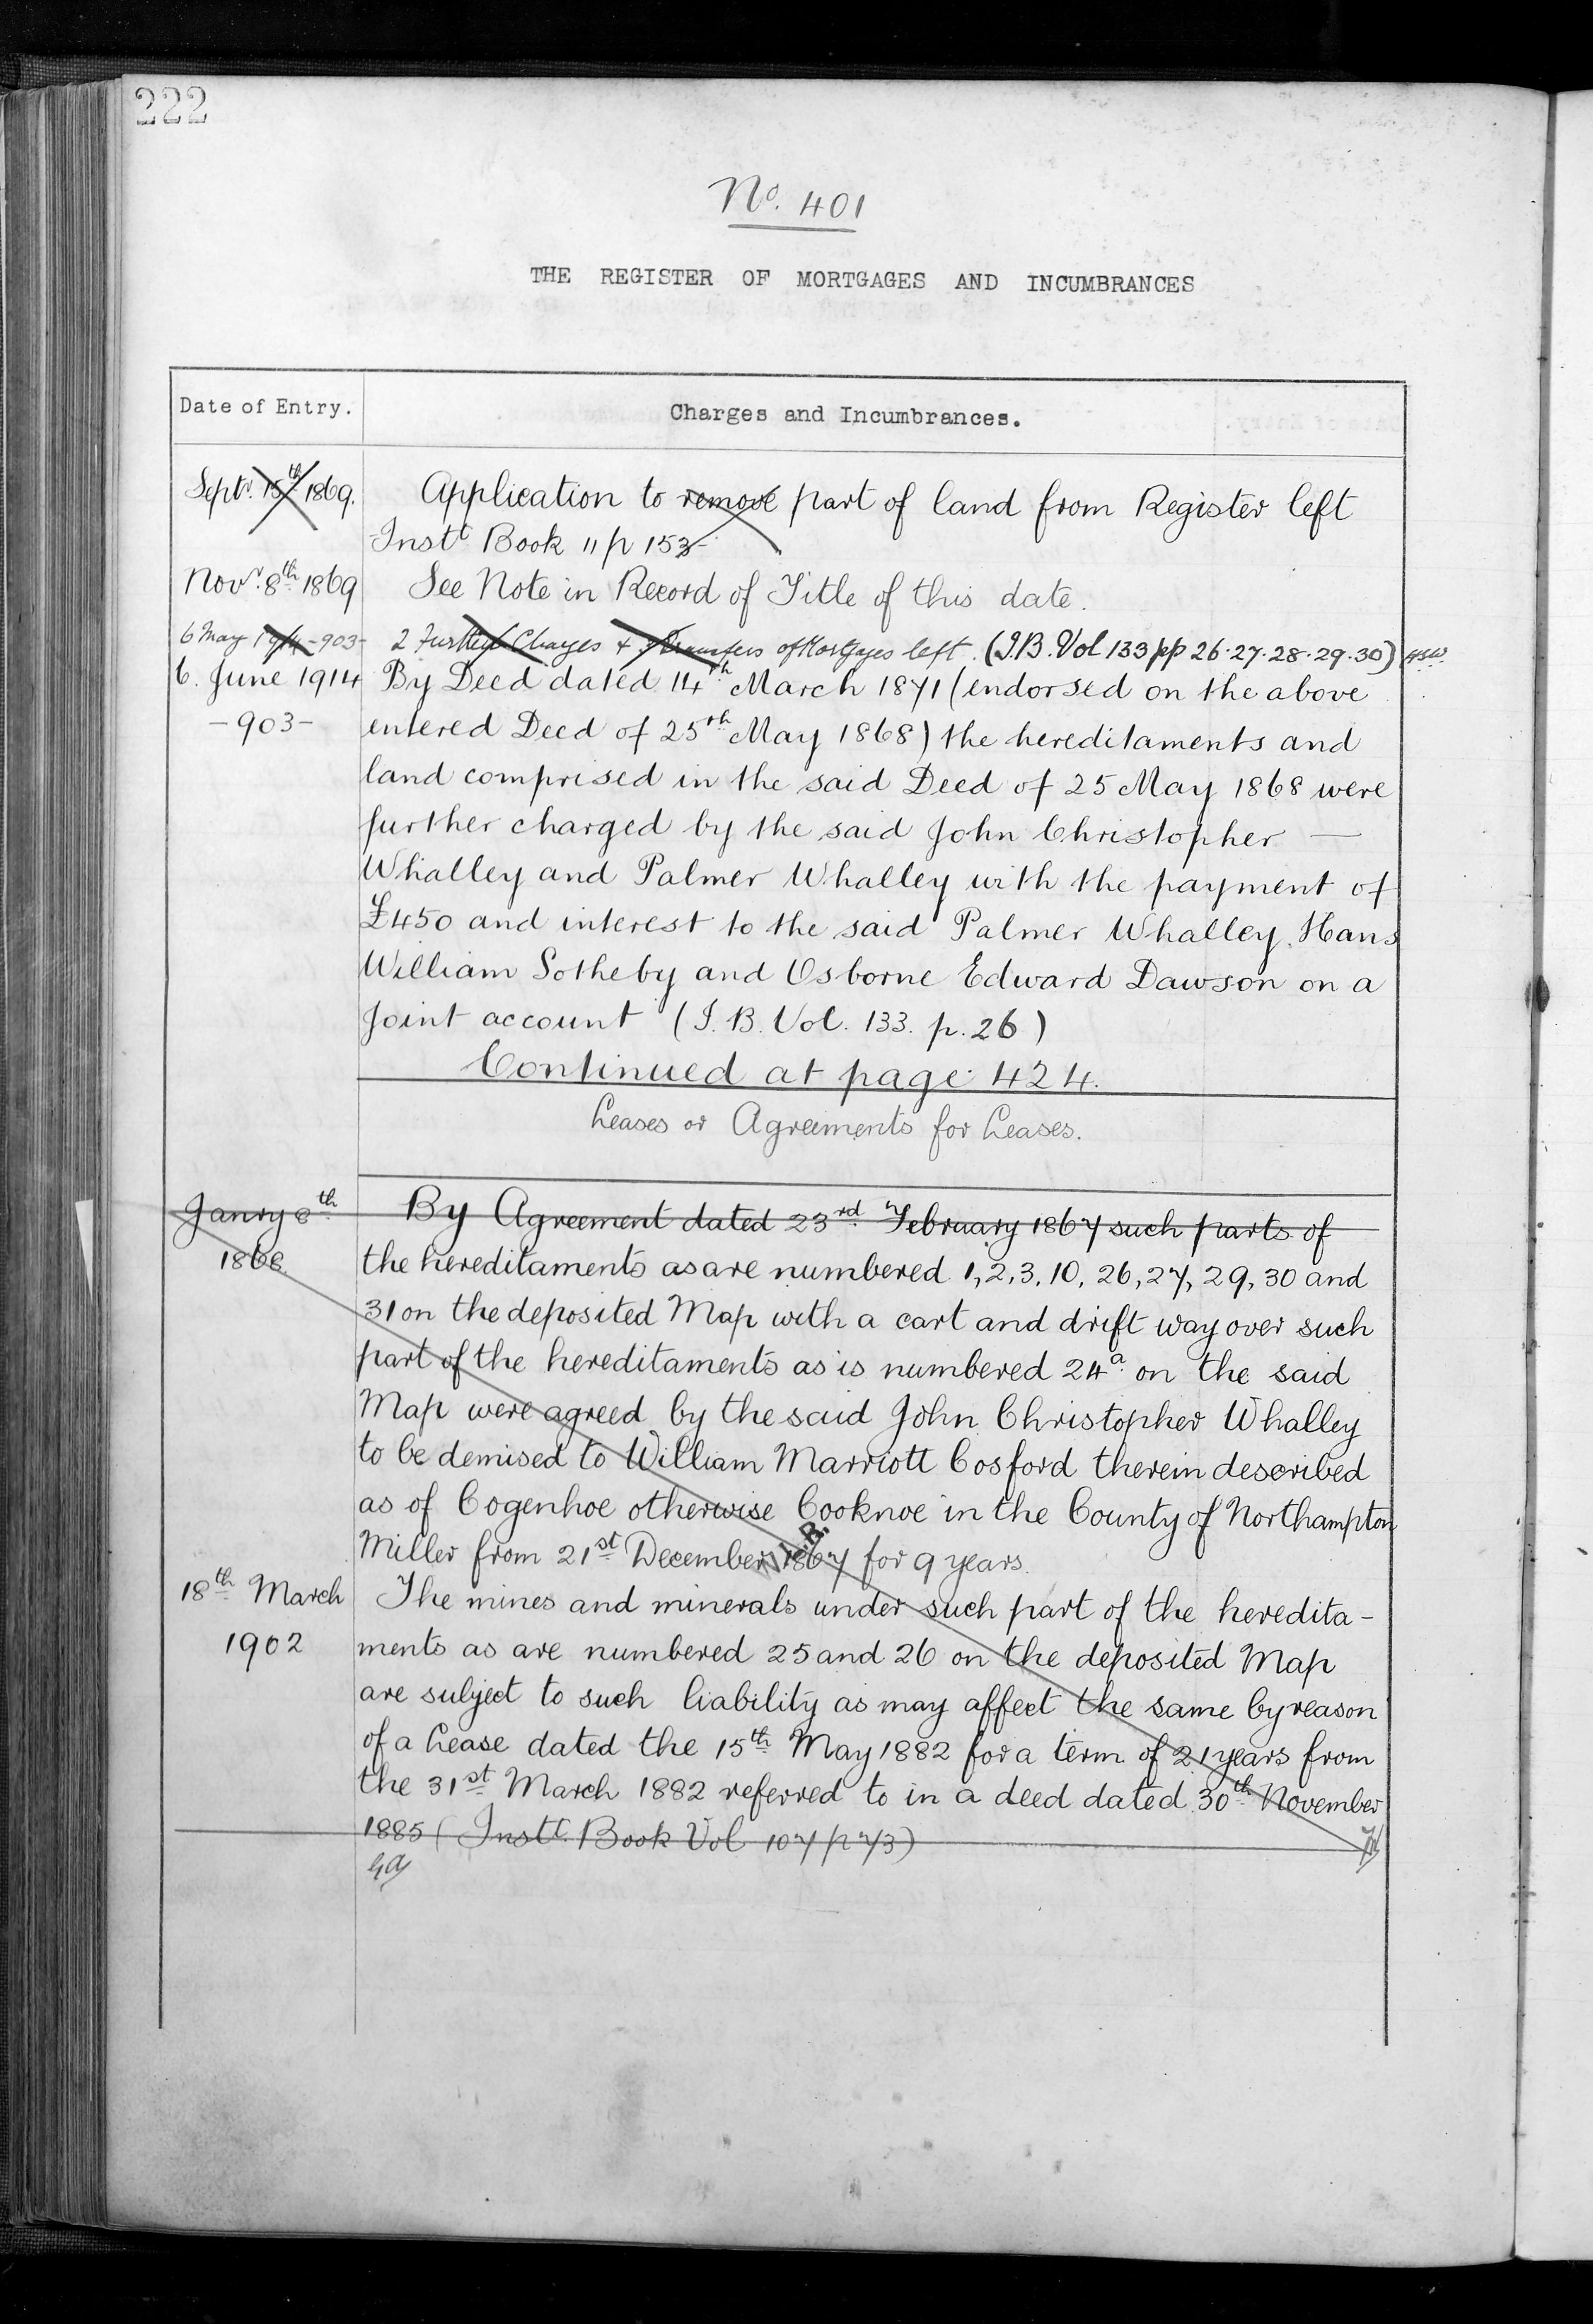 222
No. 401
THE REGISTER OF MORTGAGES AND INCUMBRANCES
Date of Entry.
Charges and Incumbrances.
Septr. 15th 1869.
Application to remove part of land from Register left
Instt Book 11 p 153
Novr. 8th 1869
See Note in Record of Title of this date.
6 May 1914 -903-
2 Further Charges & Transfers of Mortgages left. (I.B. Vol 133 pp 26.27.28.29.30)
6. June 1914
-903-
By Deed dated 14th March 1871 (endorsed on the above
entered Deed of 25th May 1868) the hereditaments and
land comprised in the said Deed of 25 May 1868 were
further charged by the said John Christopher —
Whalley and Palmer Whalley with the payment of
£450 and interest to the said Palmer Whalley, Hans
William Sotheby and Osborne Edward Dawson on a
joint account (I.B. Vol. 133. p. 26)
Continued at page 424.
Leases or Agreements for Leases.
Janry 8th
1868
By Agreement dated 23rd February 1867 such parts of
the hereditaments as are numbered 1, 2, 3, 10, 26, 27, 29, 30 and
31 on the deposited Map with a cart and drift way over such
part of the hereditaments as is numbered 24a on the said
Map were agreed by the said John Christopher Whalley
to be demised to William Marriott Cosford therein described
as of Cogenhoe otherwise Cooknoe in the County of Northampton
Miller from 21st December 1867 for 9 years.
18th March
1902
The mines and minerals under such part of the heredita-
ments as are numbered 25 and 26 on the deposited Map
are subject to such liability as may affect the same by reason
of a Lease dated the 15th May 1882 for a term of 21 years from
the 31st March 1882 referred to in a deed dated 30th November
1885 (Instt. Book Vol 107 p 73)